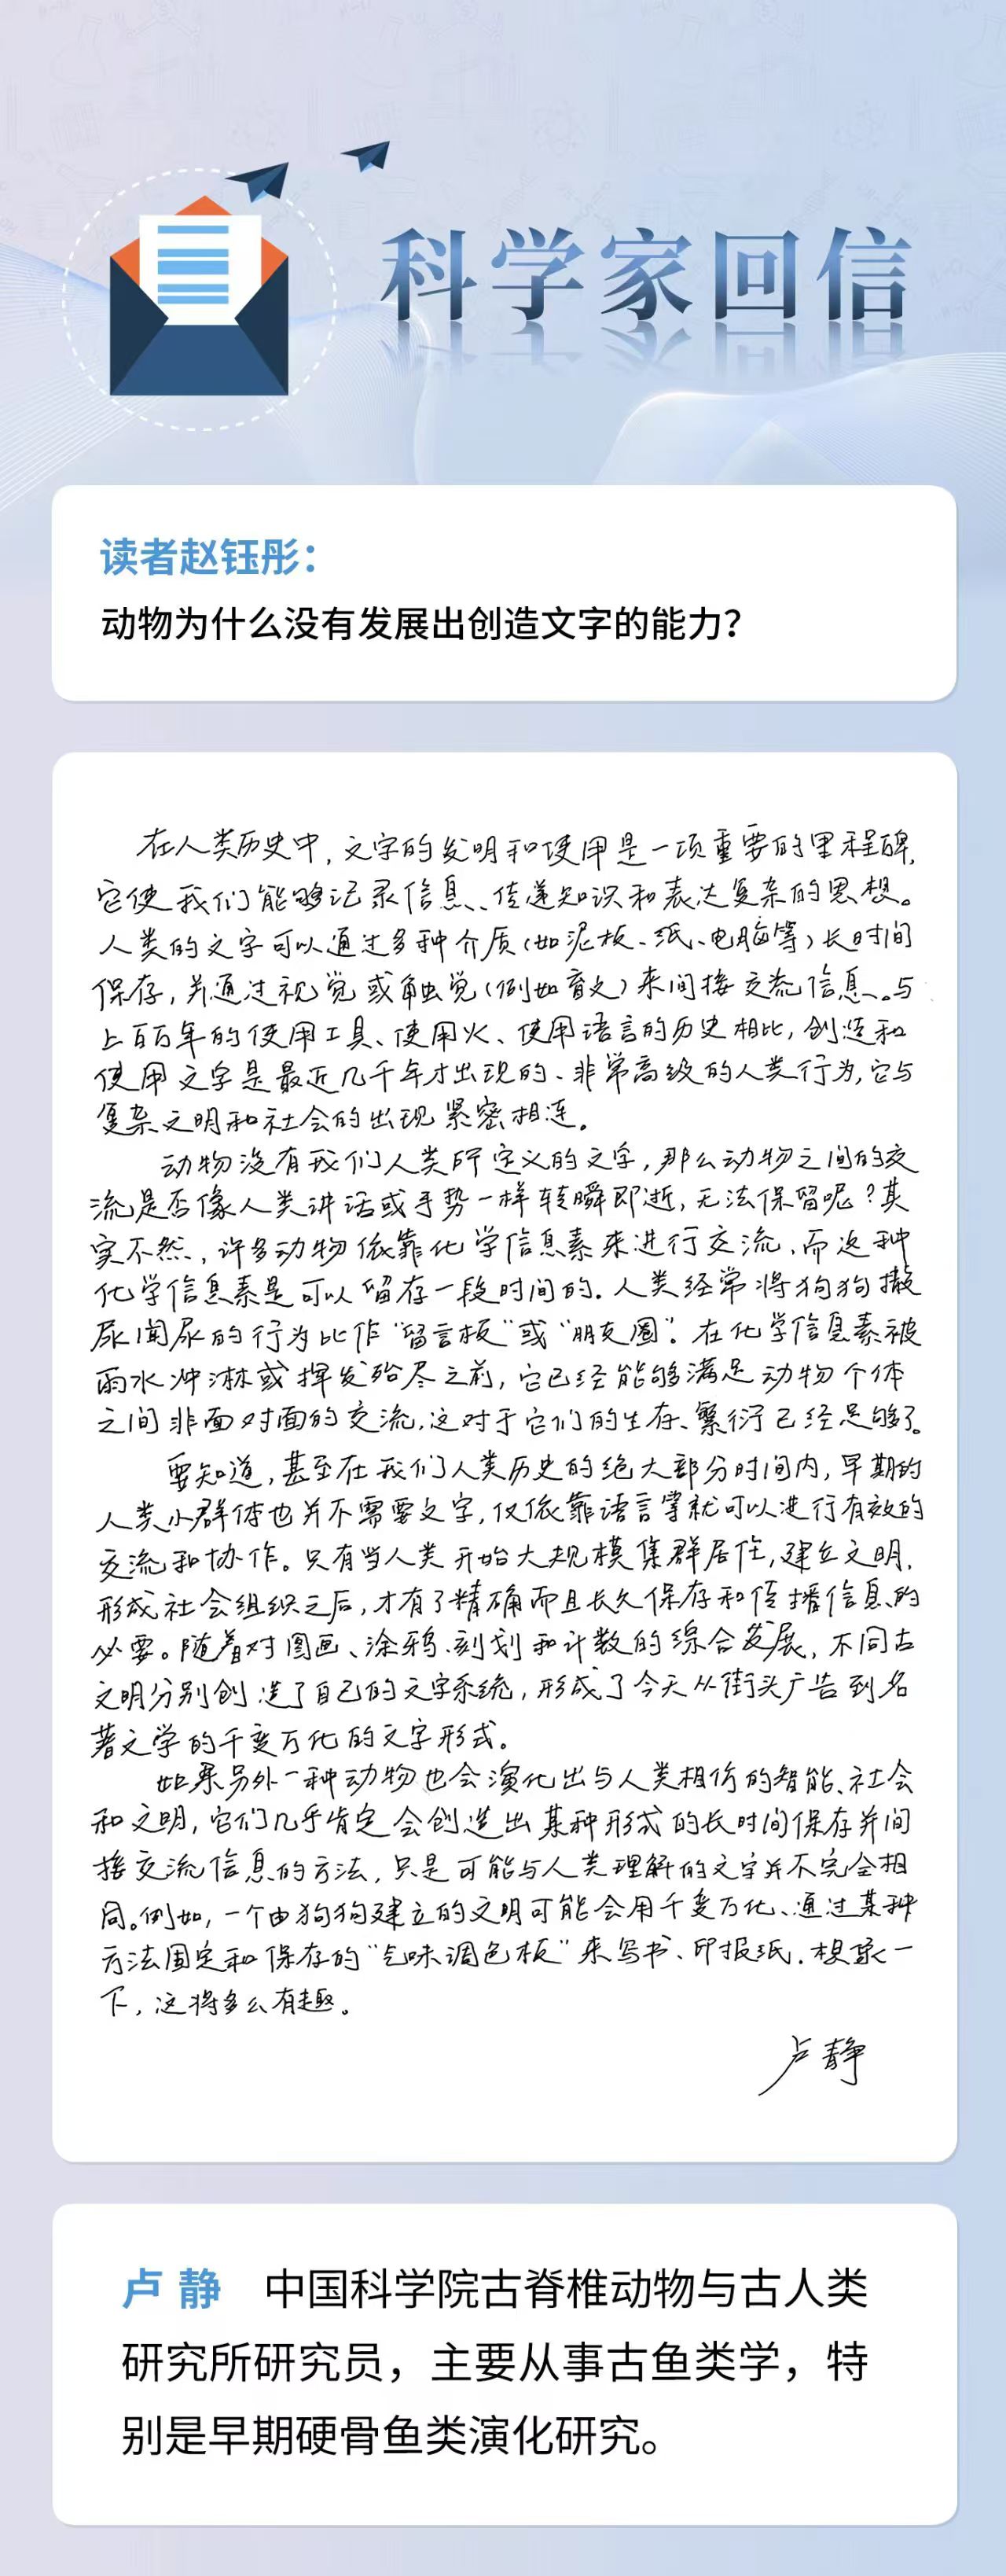 科学家回信
读者赵钰彤：
动物为什么没有发展出创造文字的能力？
在人类历史中，文字的发明和使用是一项重要的里程碑，
它使我们能够记录信息、传递知识和表达复杂的思想。
人类的文字可以通过多种介质（如泥板、纸、电脑等）长时间
保存，并通过视觉或触觉（例如盲文）来间接交流信息。与
上百万年的使用工具、使用火、使用语言的历史相比，创造和
使用文字是最近几千年才出现的、非常高级的人类行为，它与
复杂文明和社会的出现紧密相连。
动物没有我们人类所定义的文字，那么动物之间的交
流是否像人类讲话或手势一样转瞬即逝，无法保留呢？其
实不然，许多动物依靠化学信息素来进行交流，而这种
化学信息素是可以留存一段时间的。人类经常将狗狗撒
尿闻尿的行为比作“留言板”或“朋友圈”。在化学信息素被
雨水冲淋或挥发殆尽之前，它已经能够满足动物个体
之间非面对面的交流，这对于它们的生存、繁衍已经足够了。
要知道，甚至在我们人类历史的绝大部分时间内，早期的
人类小群体也并不需要文字，仅依靠语言等就可以进行有效的
交流和协作。只有当人类开始大规模集群居住，建立文明，
形成社会组织之后，才有了精确而且长久保存和传播信息的
必要。随着对图画、涂鸦、刻划和计数的综合发展，不同古
文明分别创造了自己的文字系统，形成了今天从街头广告到名
著文学的千变万化的文字形式。
如果另外一种动物也会演化出与人类相仿的智能、社会
和文明，它们几乎肯定会创造出某种形式的长时间保存并间
接交流信息的方法，只是可能与人类理解的文字并不完全相
同。例如，一个由狗狗建立的文明可能会用千变万化、通过某种
方法固定和保存的“气味调色板”来写书、印报纸．想象一
下，这将多么有趣。
卢静
卢 静 中国科学院古脊椎动物与古人类
研究所研究员，主要从事古鱼类学，特
别是早期硬骨鱼类演化研究。